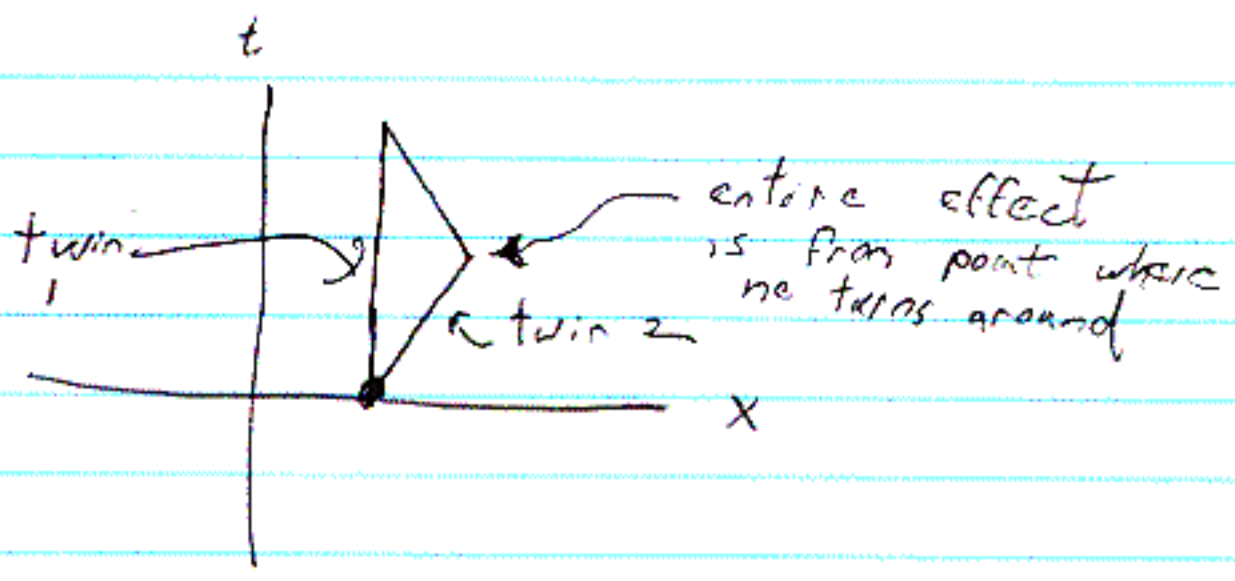 t
entire effect
is from point where
he turns around
twin
1
twin 2
x